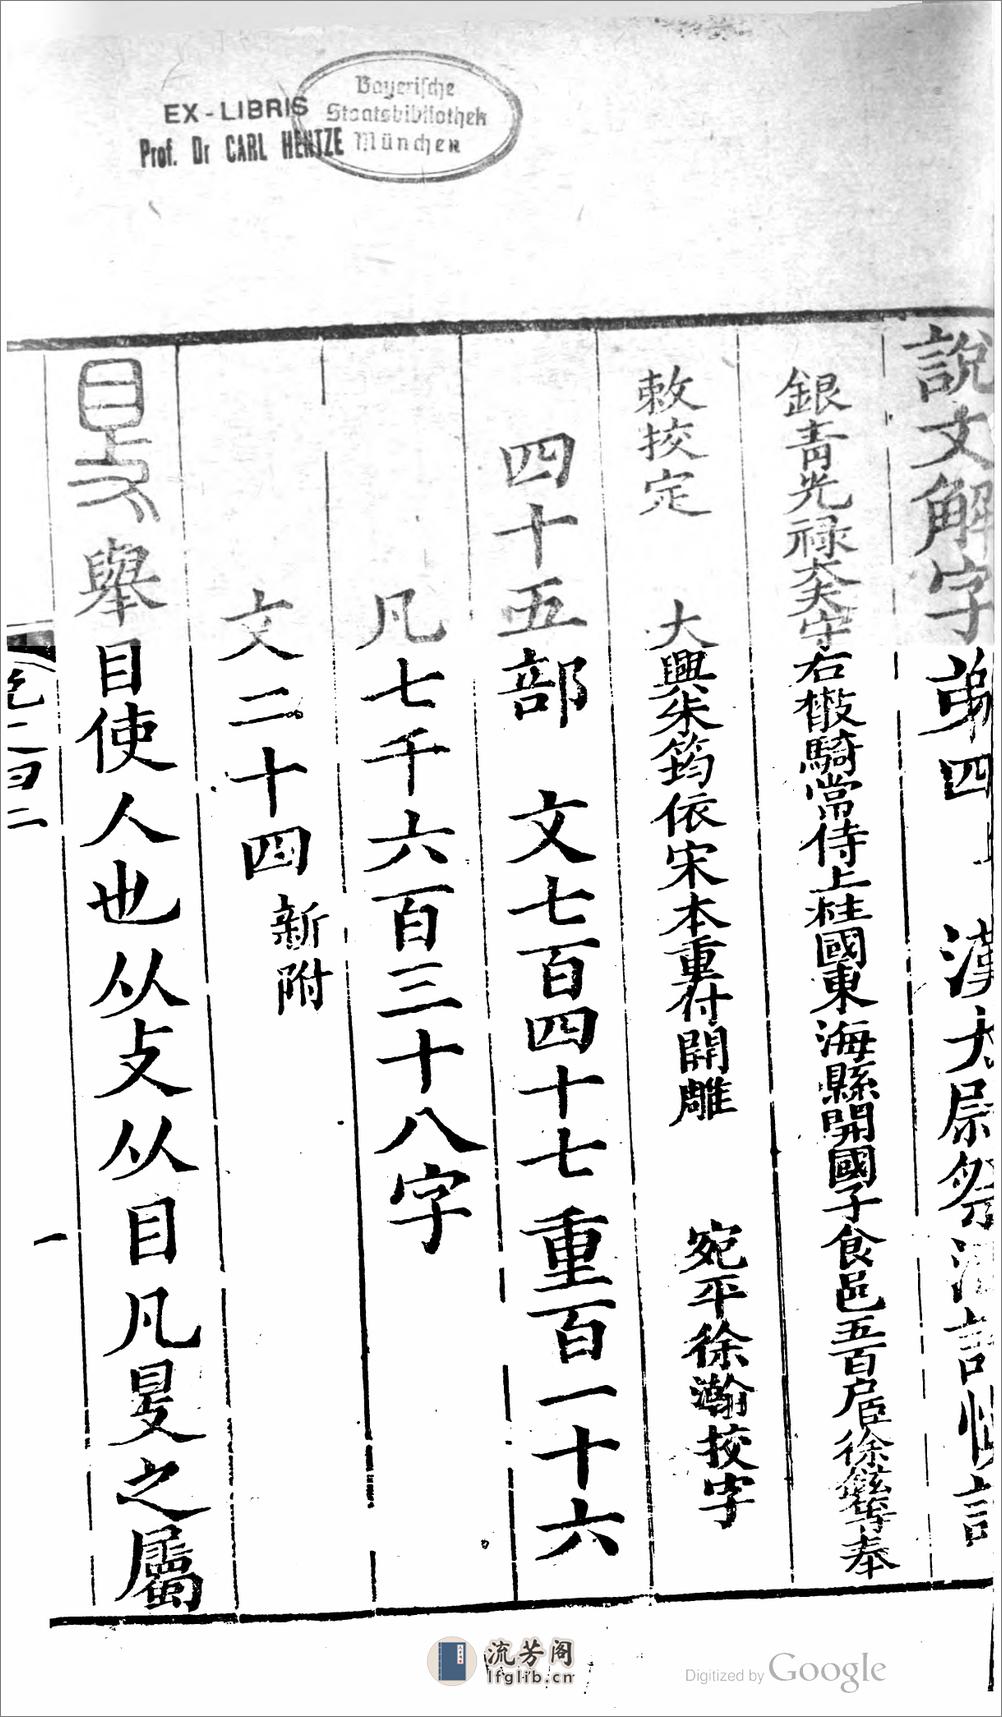 EX-LIBRIS
Prof. Dr CARL HENTZE
Bayerische
Staatsbibliothek
München
說文解字弟四上　漢太尉祭酒許慎記
銀青光祿大夫守右散騎常侍上柱國東海縣開國子食邑五百戶臣徐鉉等奉
敕挍定　大興朱筠依宋本重付開雕　宛平徐瀚挍字
四十五部　文七百四十七　重百一十六
凡七千六百三十八字
文二十四新附
𥄎舉目使人也从攴从目凡𥄎之屬
流芳阁
lfglib.cn
Digitized by Google